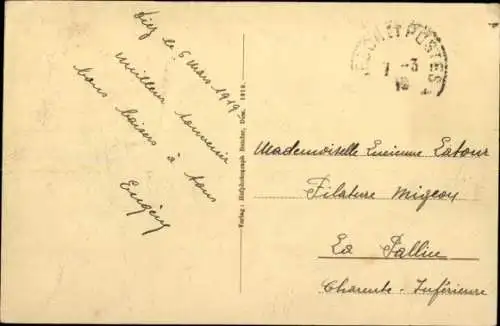 Diez le 6 mars 1919
meilleur souvenir
bons baisers à tous
Eugène
Verlag: Hofphotograph Bender, Diez. 1919.
TRÉSOR ET POSTES
7 -3
19
Mademoiselle Lucienne Latour
Filature Migeon
La Pallice
Charente-Inférieure